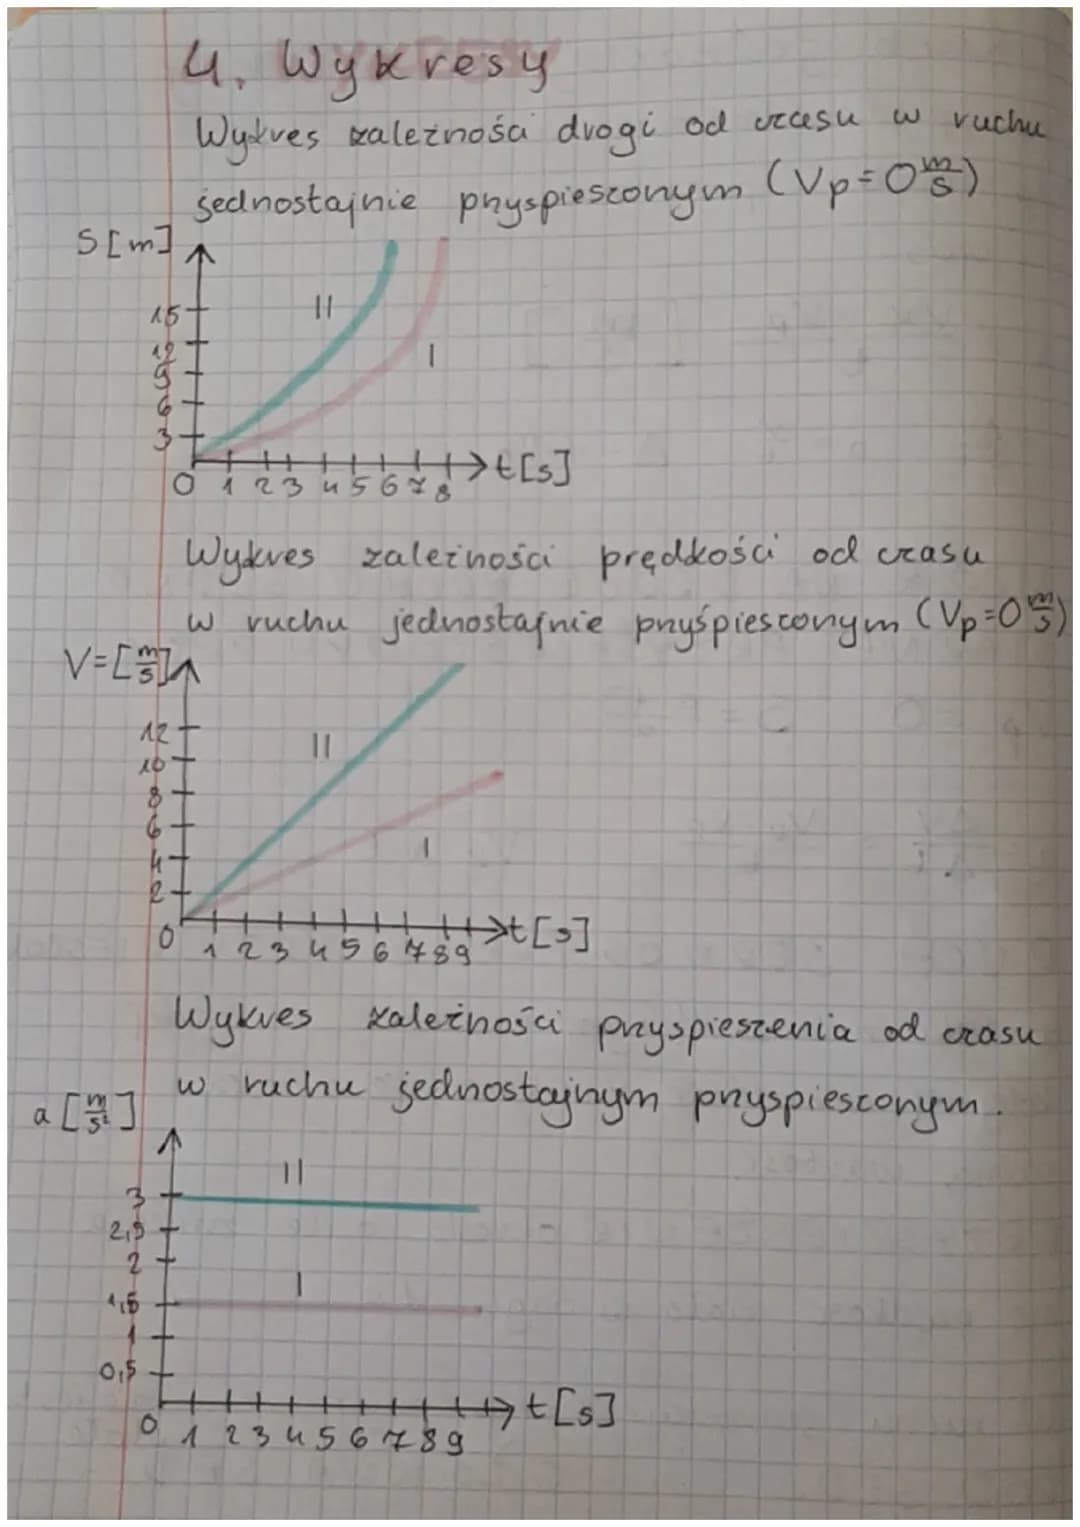 4. Wykresy
Wykres zależności drogi od czasu w ruchu
jednostajnie przyspieszonym (Vp=0 m/s)
S[m]
15
12
9
6
3
II
I
0 1 2 3 4 5 6 7 8
t[s]
Wykres zależności prędkości od czasu
w ruchu jednostajnie przyśpieszonym (Vp=0 m/s)
V=[m/s]
12
10
8
6
4
2
II
I
0 1 2 3 4 5 6 7 8 9
t[s]
Wykres zależności przyspieszenia od czasu
w ruchu jednostajnym przyspieszonym.
a [m/s²]
3
2,5
2
1,5
1
0,5
II
I
0 1 2 3 4 5 6 7 8 9
t[s]